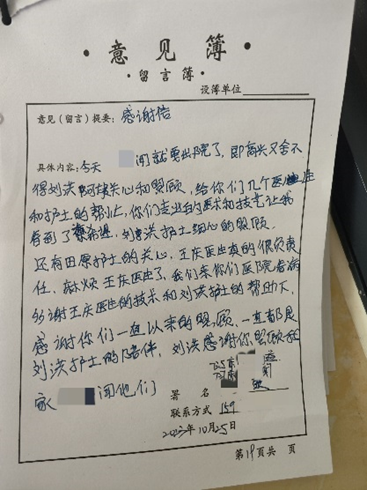 · 意 见 簿 ·
· 留 言 簿 ·
设簿单位
意见（留言）提要：感谢信
具体内容：今天 闰就要出院了，即高兴又舍不
得刘洪阿护关心和照顾，给你们几个医生
和护士的帮忙，你们支出的医术和技艺让我
看到了希望，刘洪护士细心的照顾
还有田原护士的关心，王庆医生真的很负责
任，麻烦王庆医生了，我们来你们医院看病
多谢王庆医生的技术和刘洪护士的帮助下，
感谢你们一直以来的照顾，一直都是
刘洪护士的陪伴，刘洪感谢你照顾
家 闰他们
署 名
联系方式 159
2023年10月25日
第19页共 页